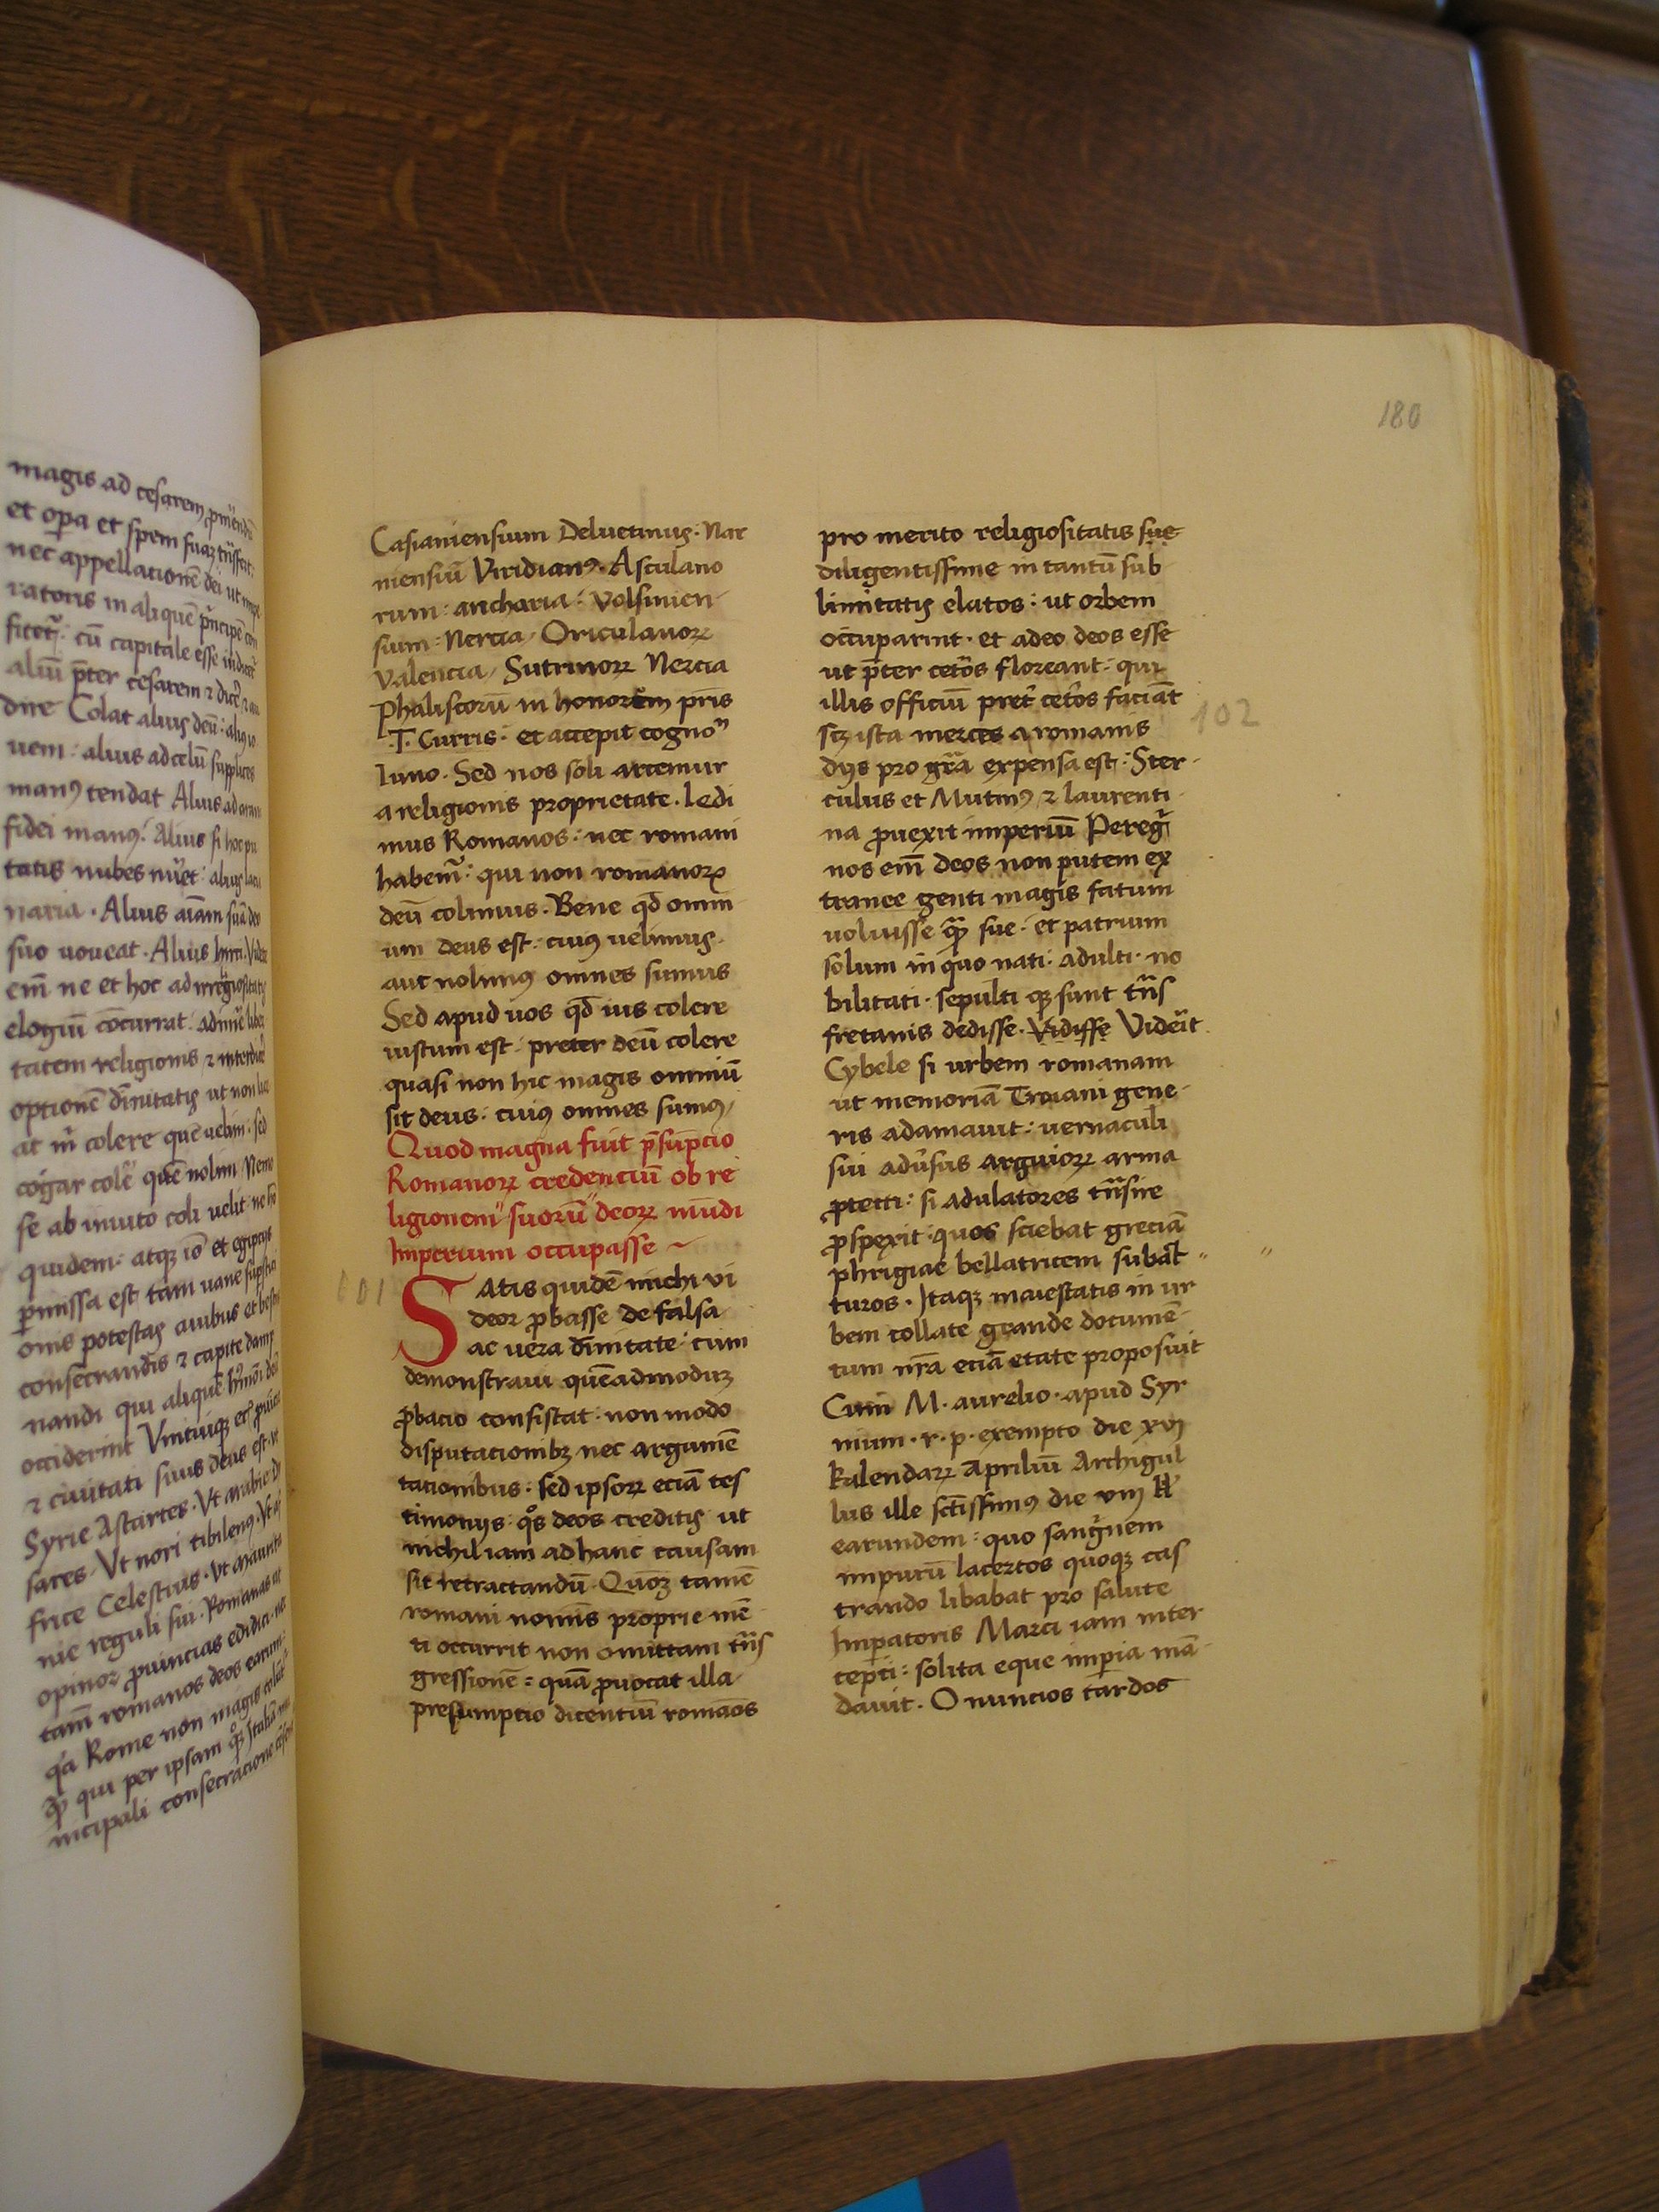 magis ad cesarem
et opera et spem suaz
nec appellationē dei ut
ratoris in aliquē p̄ncipē
fitet̄: cū capitale esse
aliū p̄ter cesarem ⁊ dicē
dire Colat aliꝰ deū: aliꝰ io
uem: alius ad celū supplices
manꝰ tendat Alius ad aram
fidei manꝰ: Alius si hoc pu
tatis nubes nūet: aliꝰ lacu
naria · Alius aīam suā deo
suo uoueat · Alius hirci · Videte
em̄ ne et hoc ad irreligiositatis
elogiū cōcurrat: adimē liber
tatem religionis ⁊ interdicē
optionē diuinitatis ut non lice
at m̄ colere quē uelim: sed
cogar colē quē nolim Nemo
se ab inuito coli uelit · ne ho
quidem: atqꝫ iō et egiptijs
pmissa est tam uane supsticio
onis potestas auibus et bestijs
consecrandis ⁊ capite damp
nandi qui aliquē
occiderint Vnicuiqꝫ
⁊ ciuitati suus deus est · vt
Syrie Astartes · Vt arabie
sares · Vt nori tibilenꝰ · Vt
frice Celestius · Vt maurita
nie reguli sui · Romanas ut
opinor puincias edidi · nec
tam̄ romanos deos earum
qa Rome non magis
qui per ipsam qꝫ Italiā
nicipali consecratione
180
Casianiensium Deluetinus · Nar
niensiū Viridianꝰ · Asculano
rum: ancharia: Volsinien
sium: Nercia, Oriculanorꝝ
Valencia, Sutrinorꝝ Nercia
Phaliscorū in honorem pr̄is
·T· Curris: et accepit cogno
Iuno · Sed nos soli arcemur
a religionis proprietate · Ledi
mus Romanos: nec romani
habem̄: qui non romanorꝝ
deū colimus · Bene qd̄ omni
um deus est: cuiꝰ uelimus ·
aut nolimꝰ omnes sumus
Sed apud uos qd̄ ius colere
iustum est: preter deū colere
quasi non hic magis omniū
sit deus: cuiꝰ omnes sumꝰ,
Quod magna fuit p̄sūpcio
Romanorꝝ credenciū ob re
ligionem suorū deorꝝ mūdi
Imperium occupasse ~
101
Satis quidē michi vi
deor pbasse de falsa
ac uera diinitate: cum
demonstraui quēadmoduꝫ
pbacio consistat · non modo
disputacionibꝫ nec argumē
tacionibus: sed ipsorꝝ eciā tes
timonijs · qͦs deos creditis · ut
nichil iam ad hanc causam
sit retractandū · Quoꝫ tamē
romani nomīs proprie mē
ti occurrit non omittam tn̄s
gressionē: quā puocat illa
presumptio dicentiū romāos
pro merito religiositatis sue
diligentissime in tantū sub
limitatis elatos: ut orbem
occuparint · et adeo deos esse
ut p̄ter cet̄os floreant: qui
illis officiū pret̄ cet̄os faciāt
102
scꝫ ista merces a romanis
dijs pro grā expensa est: Ster
culus et Mutinꝰ ⁊ laurenti
na puexit imperiū Pereg̃
nos em̄ deos non putem ex
tranee genti magis fatum
uoluisse qꝫ sue: et patrium
solum in quo nati: adulti · no
bilitati · sepulti qꝫ sunt tn̄s
fretanis dedisse · Vidisse Videit
Cybele si urbem romanam
ut memoriā Troiani gene
ris adamauit: uernaculi
sui adūsus arguiorꝝ arma
ptecti: si adulatores tn̄sire
pspexit · quos sciebat greciā
phrigiae bellatricem subac
turos · Itaqꝫ maiestatis in ur
bem collate grande documē
tum nrā eciā etate proposuit
Cum M · aurelio · apud Syr
mium · r · p · exempto die xvj
kalendarꝝ apriliū Archigul
lus ille sctissimꝰ die viiij kl̄
earundem: quo sang̃nem
impurū lacertos quoqꝫ cas
trando libabat pro salute
Imperatoris Marci iam inter
cepti: solita eque imperia mā
dauit · O nuncios tardos